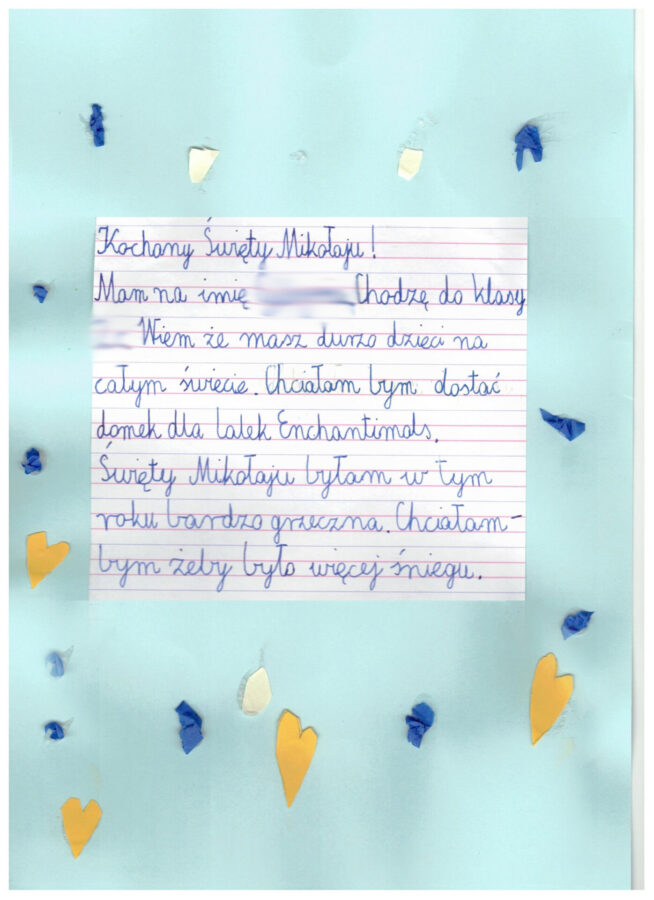 Kochany Święty Mikołaju!
Mam na imię Chodzę do klasy
Wiem że masz durzo dzieci na
całym świecie. Chciałam bym dostać
domek dla lalek Enchantimals.
Święty Mikołaju byłam w tym
roku bardzo grzeczna. Chciałam-
bym żeby było więcej śniegu.